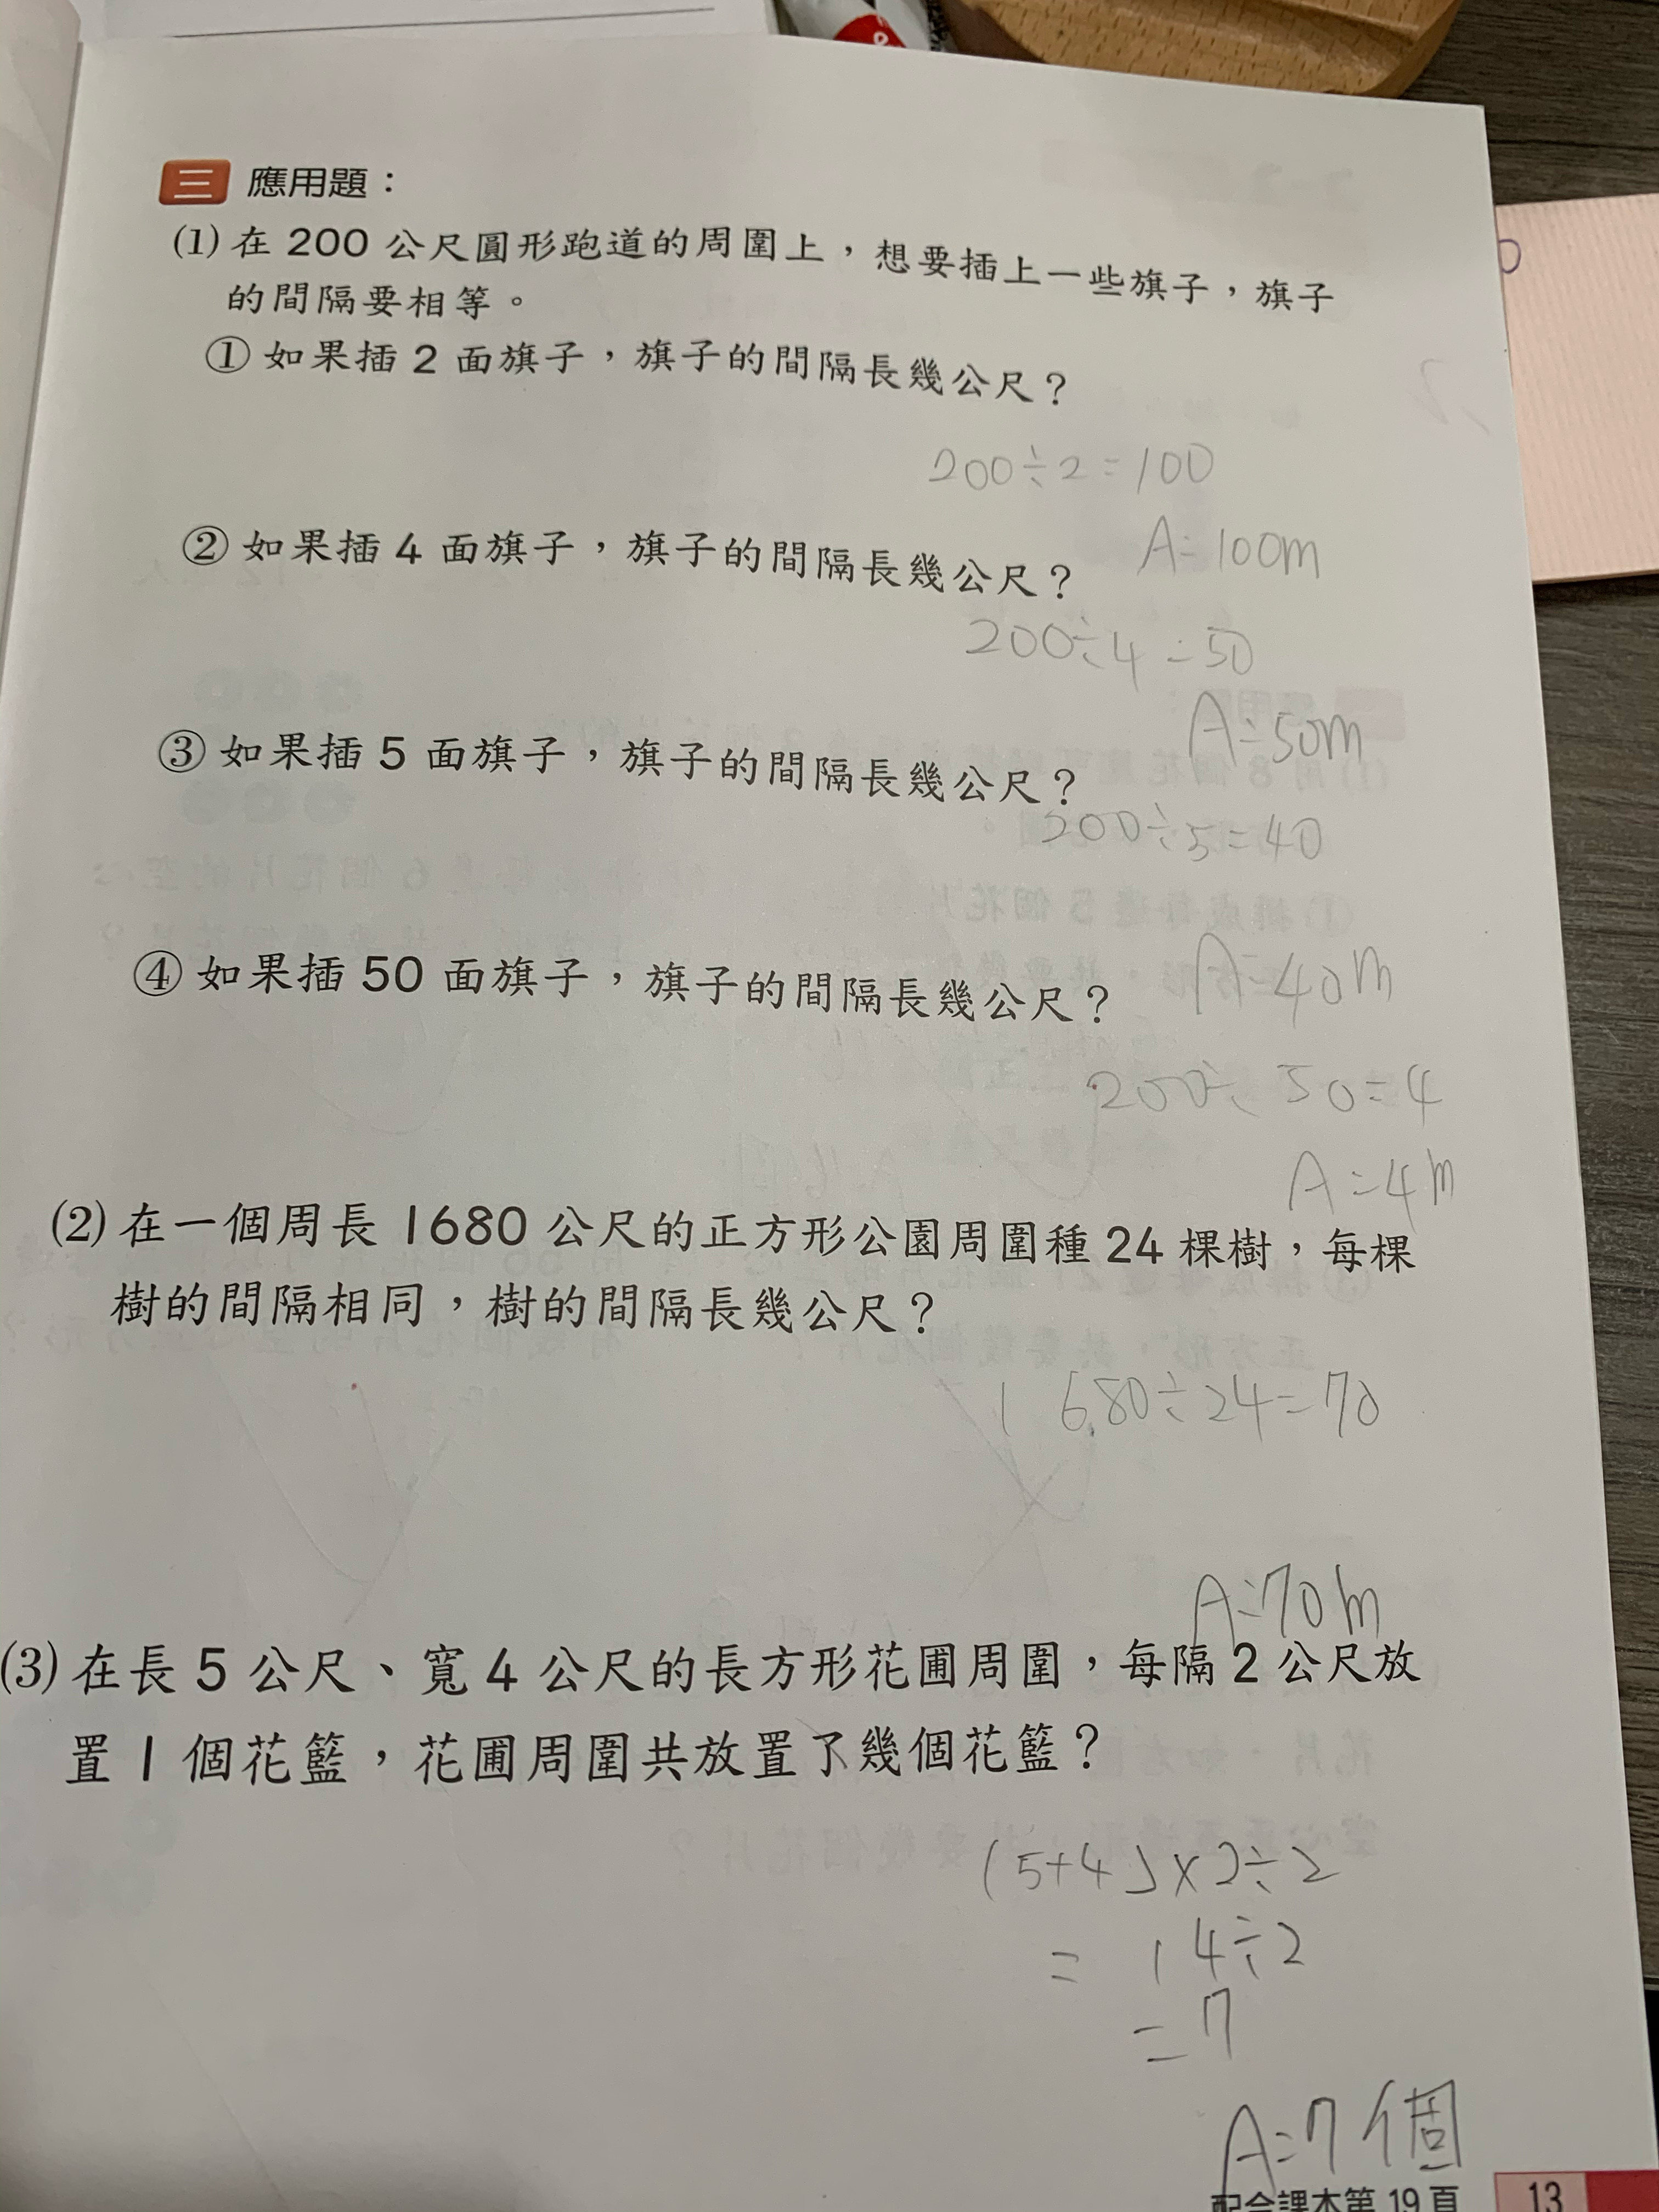 三 應用題：
(1) 在 200 公尺圓形跑道的周圍上，想要插上一些旗子，旗子
的間隔要相等。
① 如果插 2 面旗子，旗子的間隔長幾公尺？
200÷2=100
A=100m
② 如果插 4 面旗子，旗子的間隔長幾公尺？
200÷4=50
A=50m
③ 如果插 5 面旗子，旗子的間隔長幾公尺？
200÷5=40
A=40m
④ 如果插 50 面旗子，旗子的間隔長幾公尺？
200÷50=4
A=4m
(2) 在一個周長 1680 公尺的正方形公園周圍種 24 棵樹，每棵
樹的間隔相同，樹的間隔長幾公尺？
1680÷24=70
A=70m
(3) 在長 5 公尺、寬 4 公尺的長方形花圃周圍，每隔 2 公尺放
置 1 個花籃，花圃周圍共放置了幾個花籃？
(5+4)×2÷2
=14÷2
=7
A=7個
配合課本第 19 頁 13